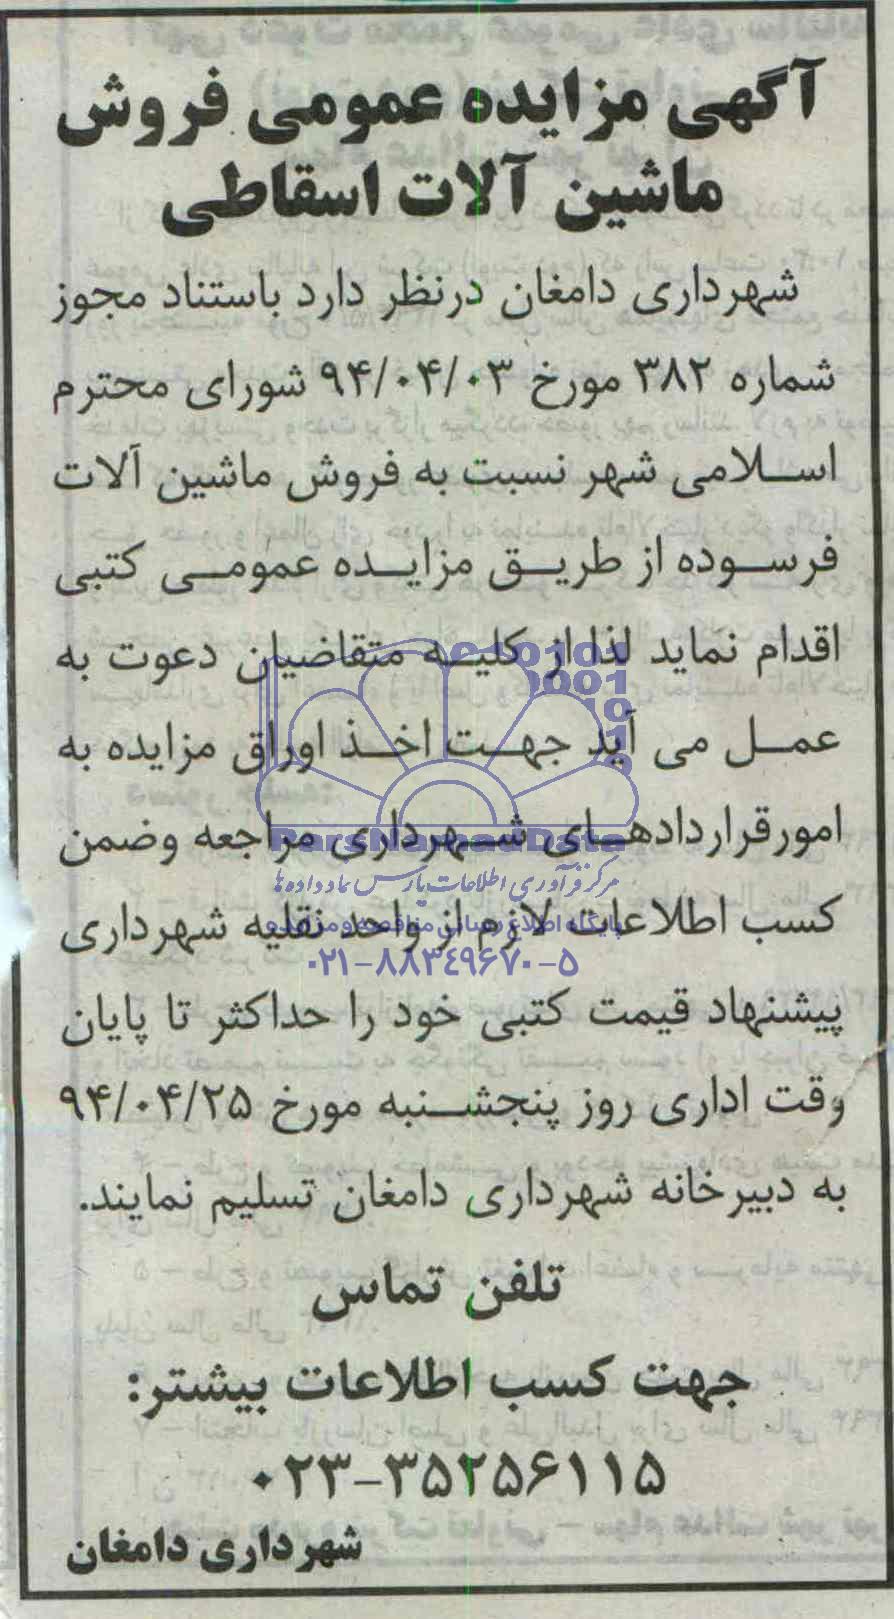 آگهی مزایده عمومی فروش
ماشین آلات اسقاطی
شهرداری دامغان درنظر دارد باستناد مجوز
شماره ۳۸۲ مورخ ۹۴/۰۴/۰۳ شورای محترم
اسلامی شهر نسبت به فروش ماشین آلات
فرسوده از طریق مزایده عمومی کتبی
اقدام نماید لذا از کلیه متقاضیان دعوت به
عمل می آید جهت اخذ اوراق مزایده به
امورقراردادهای شهرداری مراجعه وضمن
کسب اطلاعات لازم از واحد نقلیه شهرداری
پیشنهاد قیمت کتبی خود را حداکثر تا پایان
وقت اداری روز پنجشنبه مورخ ۹۴/۰۴/۲۵
به دبیرخانه شهرداری دامغان تسلیم نمایند.
تلفن تماس
جهت کسب اطلاعات بیشتر:
۰۲۳-۳۵۲۵۶۱۱۵
شهرداری دامغان
ParsNamadData
مرکز فرآوری اطلاعات پارس نماد داده ها
پایگاه اطلاع رسانی مناقصه و مزایده
۰۲۱-۸۸۳۴۹۶۷۰-۵